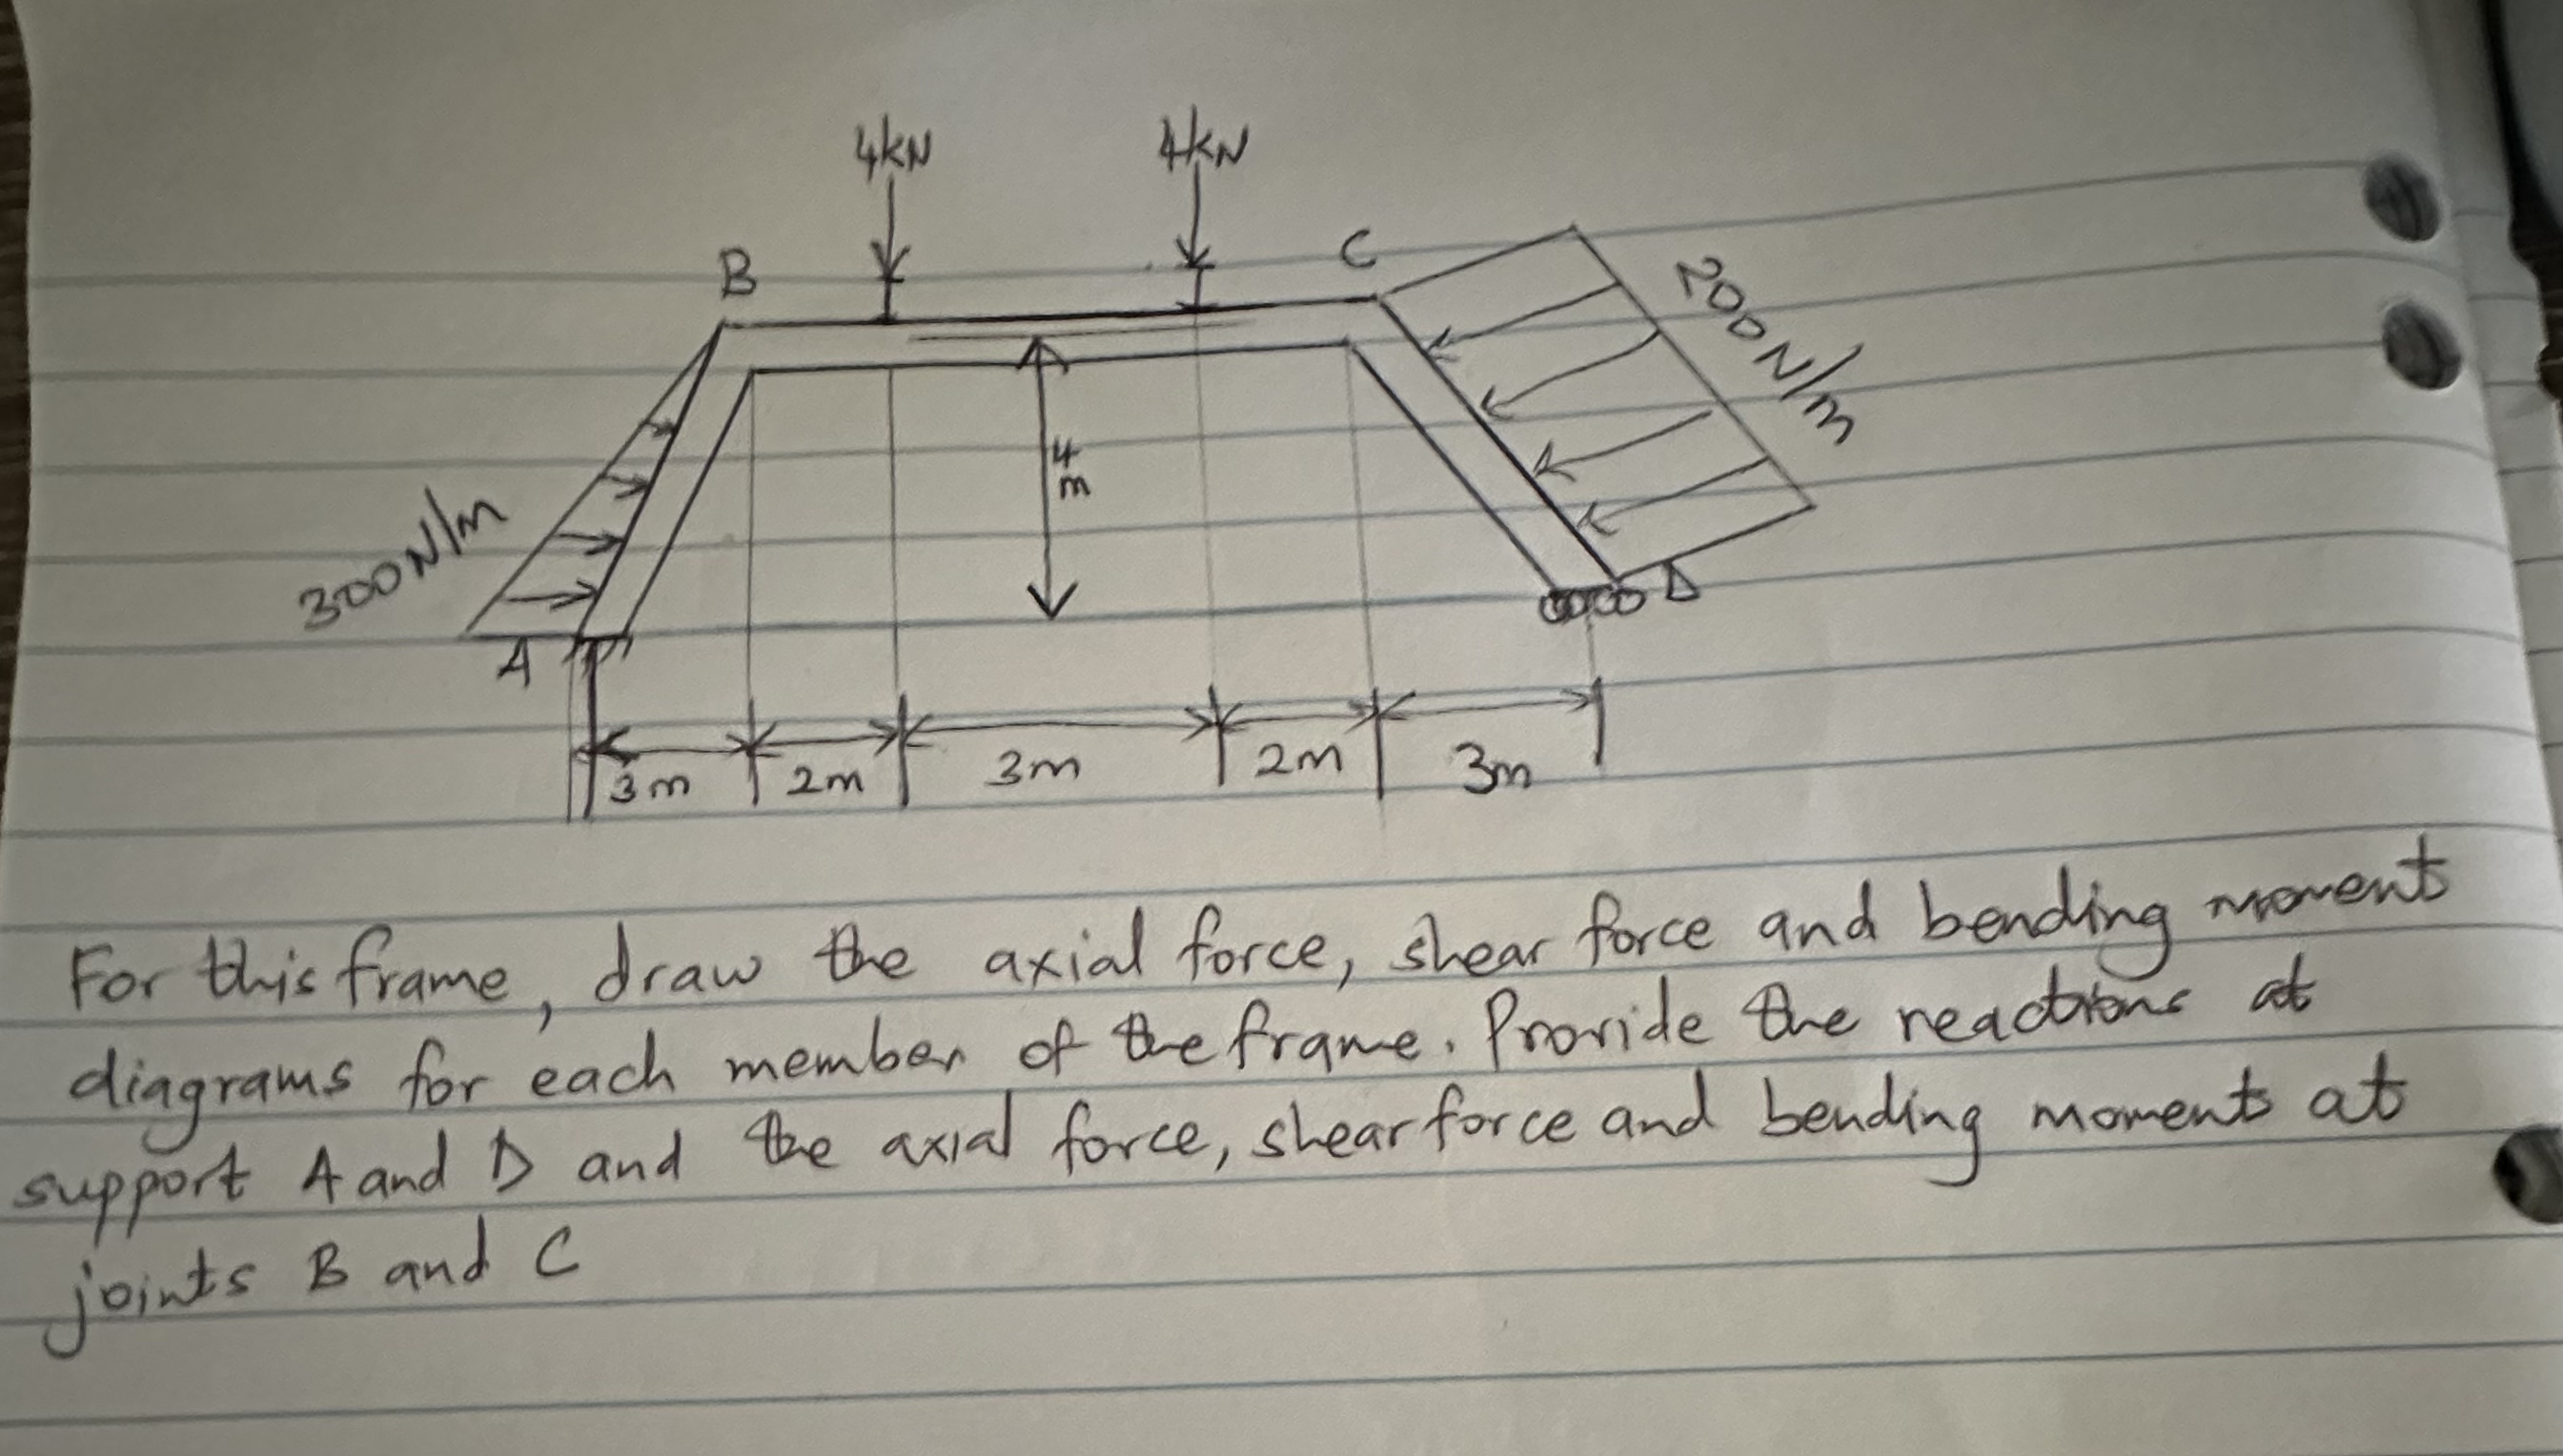 4kN 4kN
B C
200N/m
4
m
300N/m
A D
3m 2m 3m 2m 3m
For this frame, draw the axial force, shear force and bending moment
diagrams for each member of the frame. Provide the reactions at
support A and D and the axial force, shear force and bending moments at
joints B and C